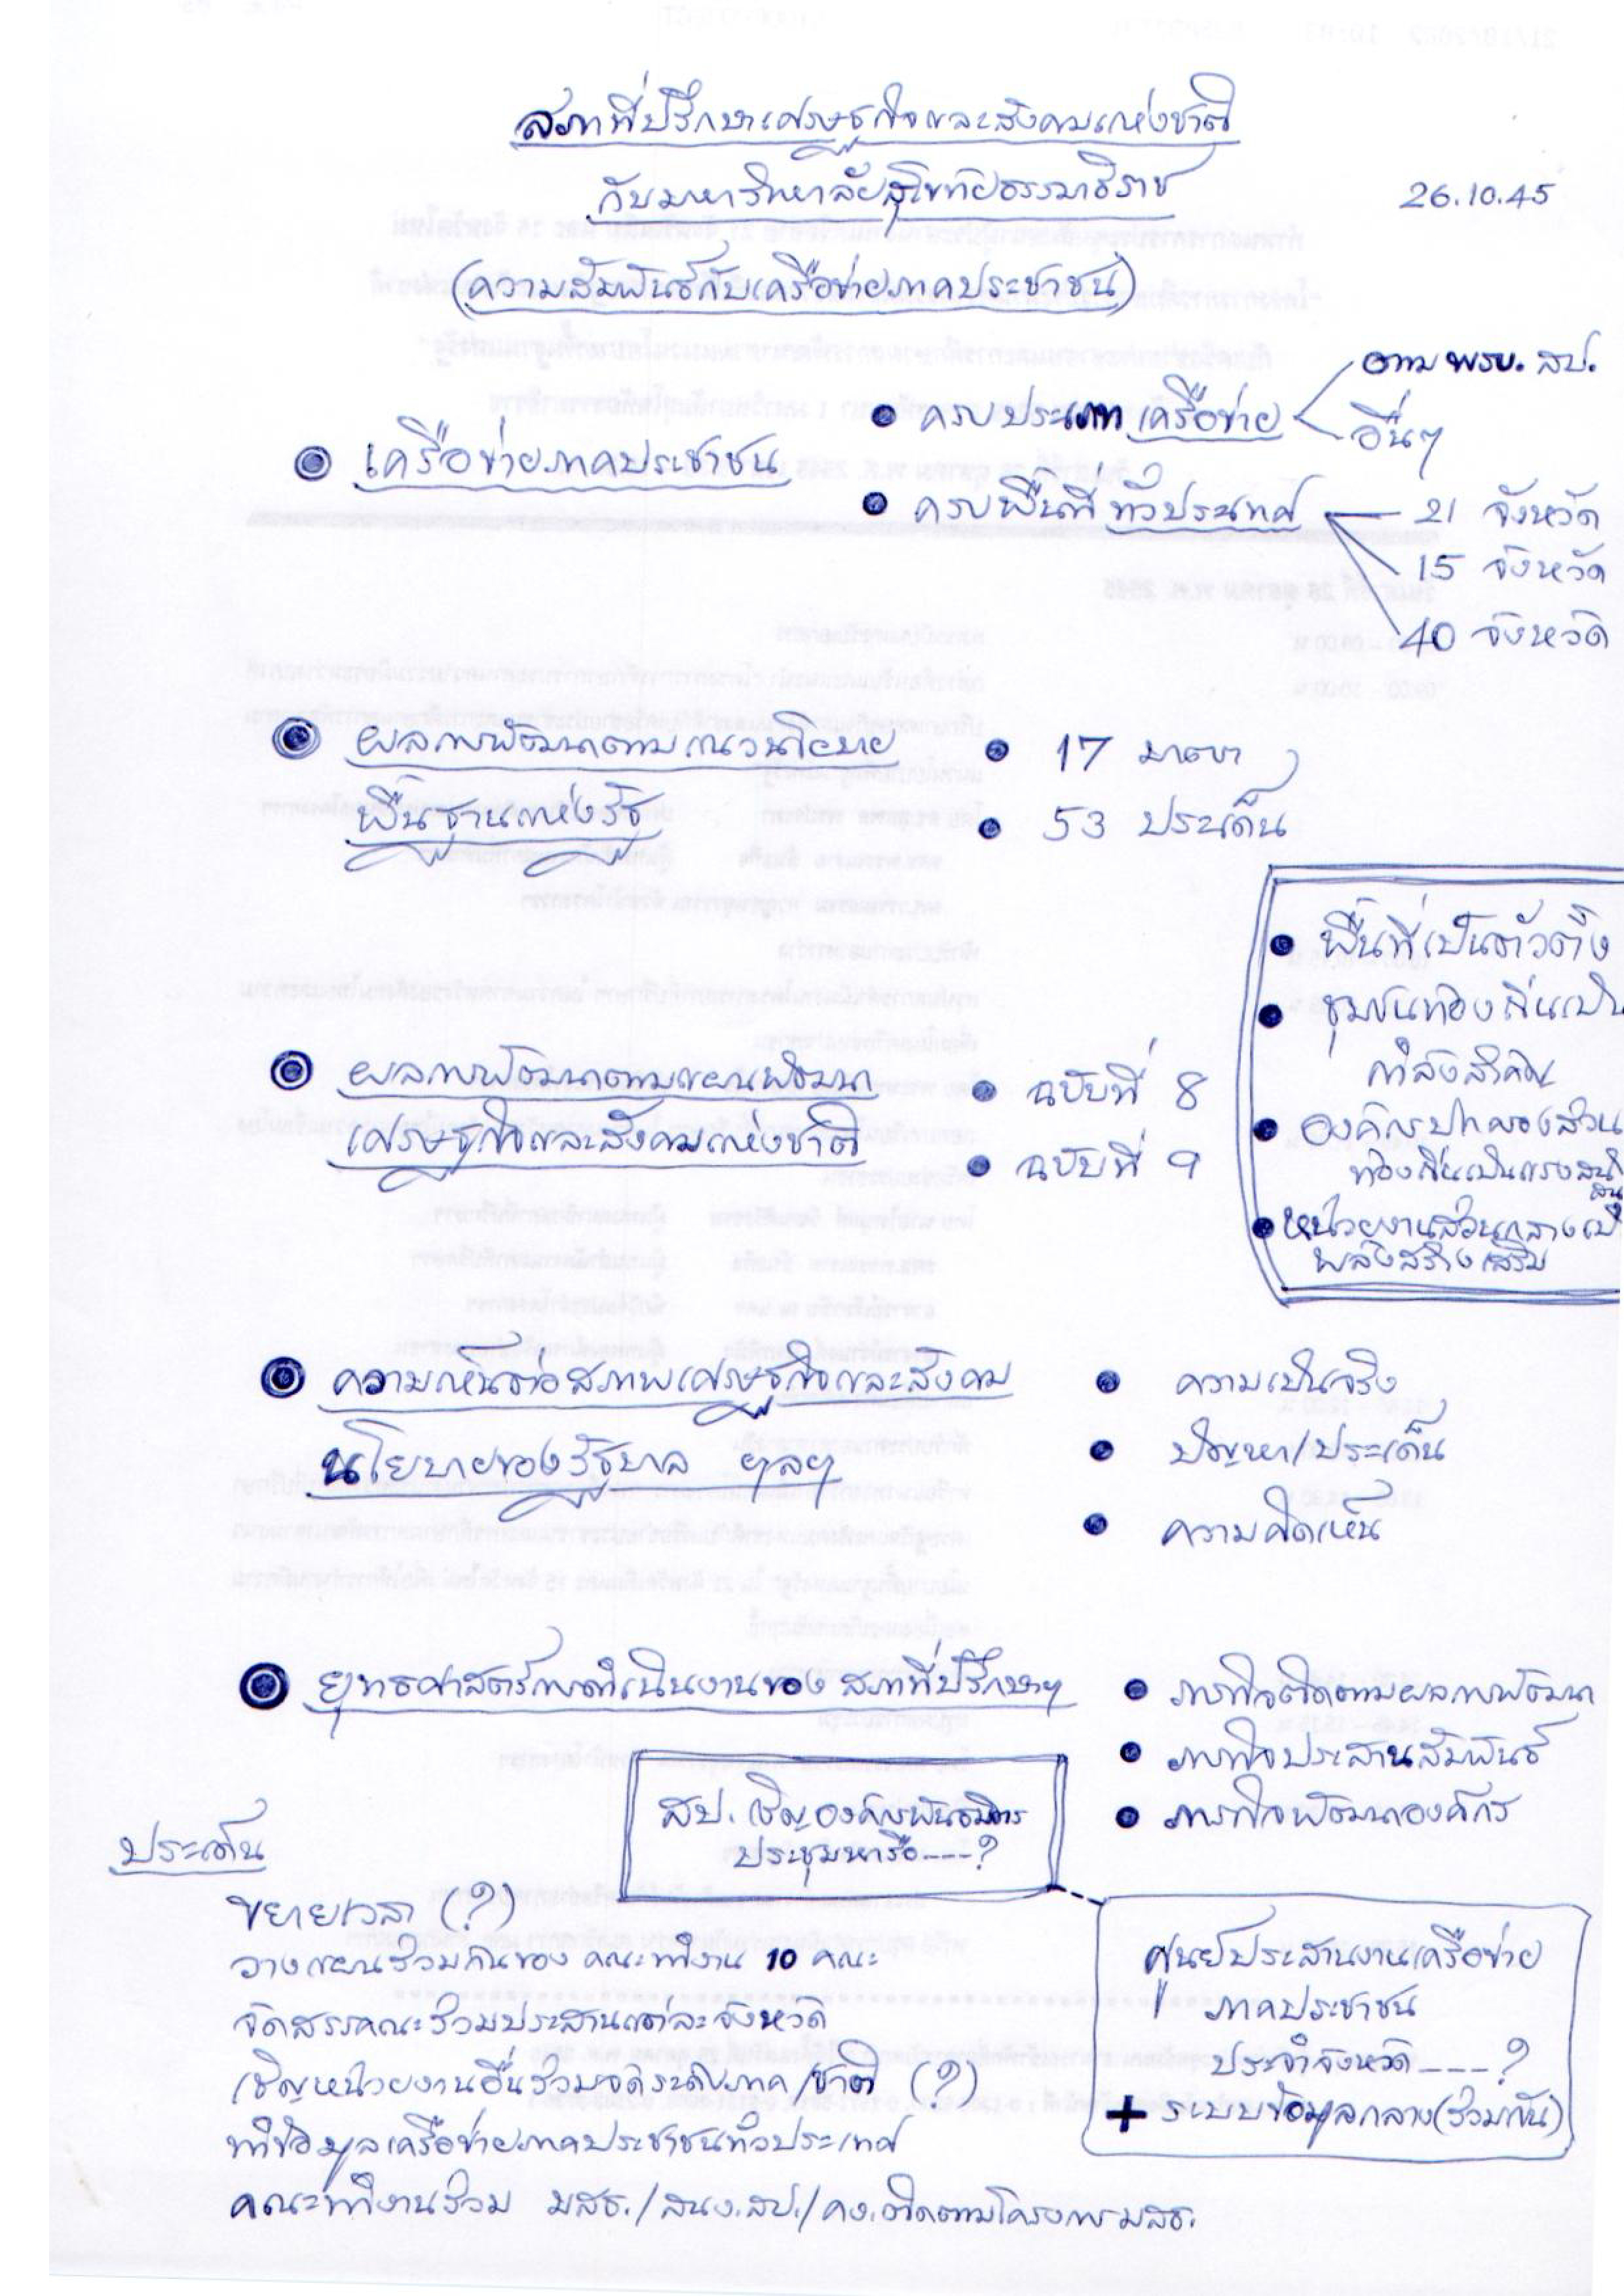 สภาที่ปรึกษาเศรษฐกิจและสังคมแห่งชาติ
กับมหาวิทยาลัยสุโขทัยธรรมาธิราช
26.10.45
(ความสัมพันธ์กับเครือข่ายภาคประชาชน)
เครือข่ายภาคประชาชน
ครบประเภทเครือข่าย
ตาม พรบ. สป.
อื่นๆ
ครบพื้นที่ทั่วประเทศ
21 จังหวัด
15 จังหวัด
40 จังหวัด
ผลการพัฒนาตามแนวนโยบาย
พื้นฐานแห่งรัฐ
17 มาตรา
53 ประเด็น
พื้นที่เป็นตัวตั้ง
ชุมชนท้องถิ่นเป็น
กำลังสำคัญ
องค์กรปกครองส่วน
ท้องถิ่นเป็นแรงสนับ
สนุน
หน่วยงานส่วนกลางเป็น
พลังสร้างเสริม
ผลการพัฒนาตามแผนพัฒนา
เศรษฐกิจและสังคมแห่งชาติ
ฉบับที่ 8
ฉบับที่ 9
ความเห็นต่อสภาพเศรษฐกิจและสังคม
นโยบายของรัฐบาล ฯลฯ
ความเป็นจริง
ปัญหา/ประเด็น
ความคิดเห็น
ยุทธศาสตร์การดำเนินงานของ สภาที่ปรึกษาฯ
ภารกิจติดตามผลการพัฒนา
ภารกิจประสานสัมพันธ์
ภารกิจพัฒนาองค์กร
สป. เชิญองค์กรพันธมิตร
ประชุมหารือ----?
ประเด็น
ขยายเวลา (?)
วางแผนร่วมกันของ คณะทำงาน 10 คณะ
จัดสรรคณะร่วมประสานแต่ละจังหวัด
เชิญหน่วยงานอื่นร่วมจัดระดับภาค/ชาติ (?)
ทำข้อมูลเครือข่ายภาคประชาชนทั่วประเทศ
คณะทำงานร่วม มสธ./สนง.สป./คง.ติดตามโครงการมสธ.
ศูนย์ประสานงานเครือข่าย
ภาคประชาชน
ประจำจังหวัด----?
+ ระบบข้อมูลกลาง(ร่วมกัน)